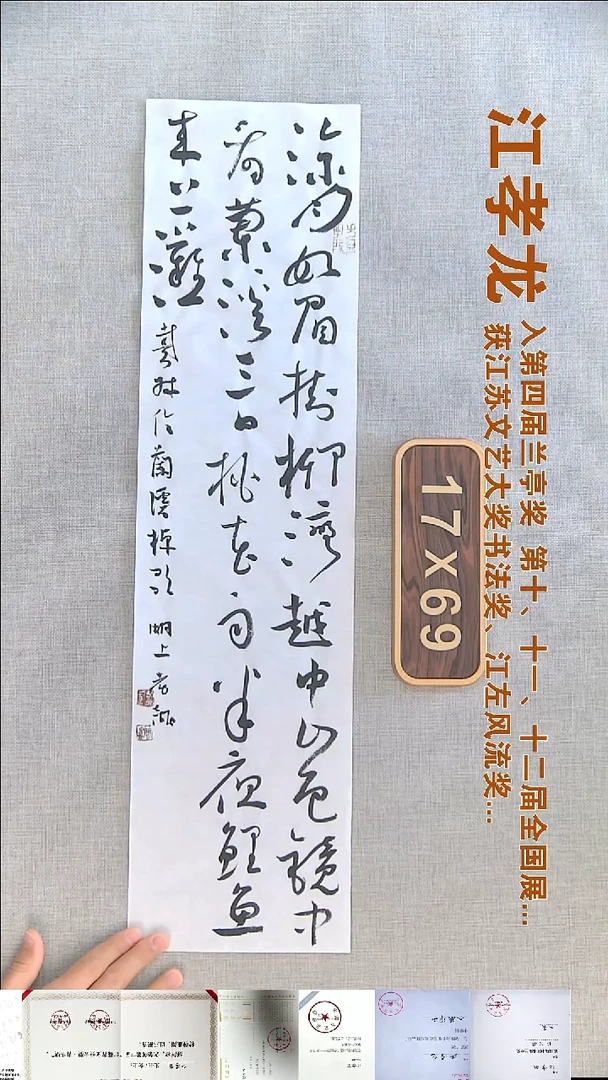 涼月如眉掛柳灣越中山色鏡中
看蘭溪三日桃花雨半夜鯉魚
来上灘
戴叔倫蘭溪棹歌 湖上孝龍
江孝龙
入第四届兰亭奖 第十、十一、十二届全国展...
获江苏文艺大奖书法奖、江左风流奖...
17x69